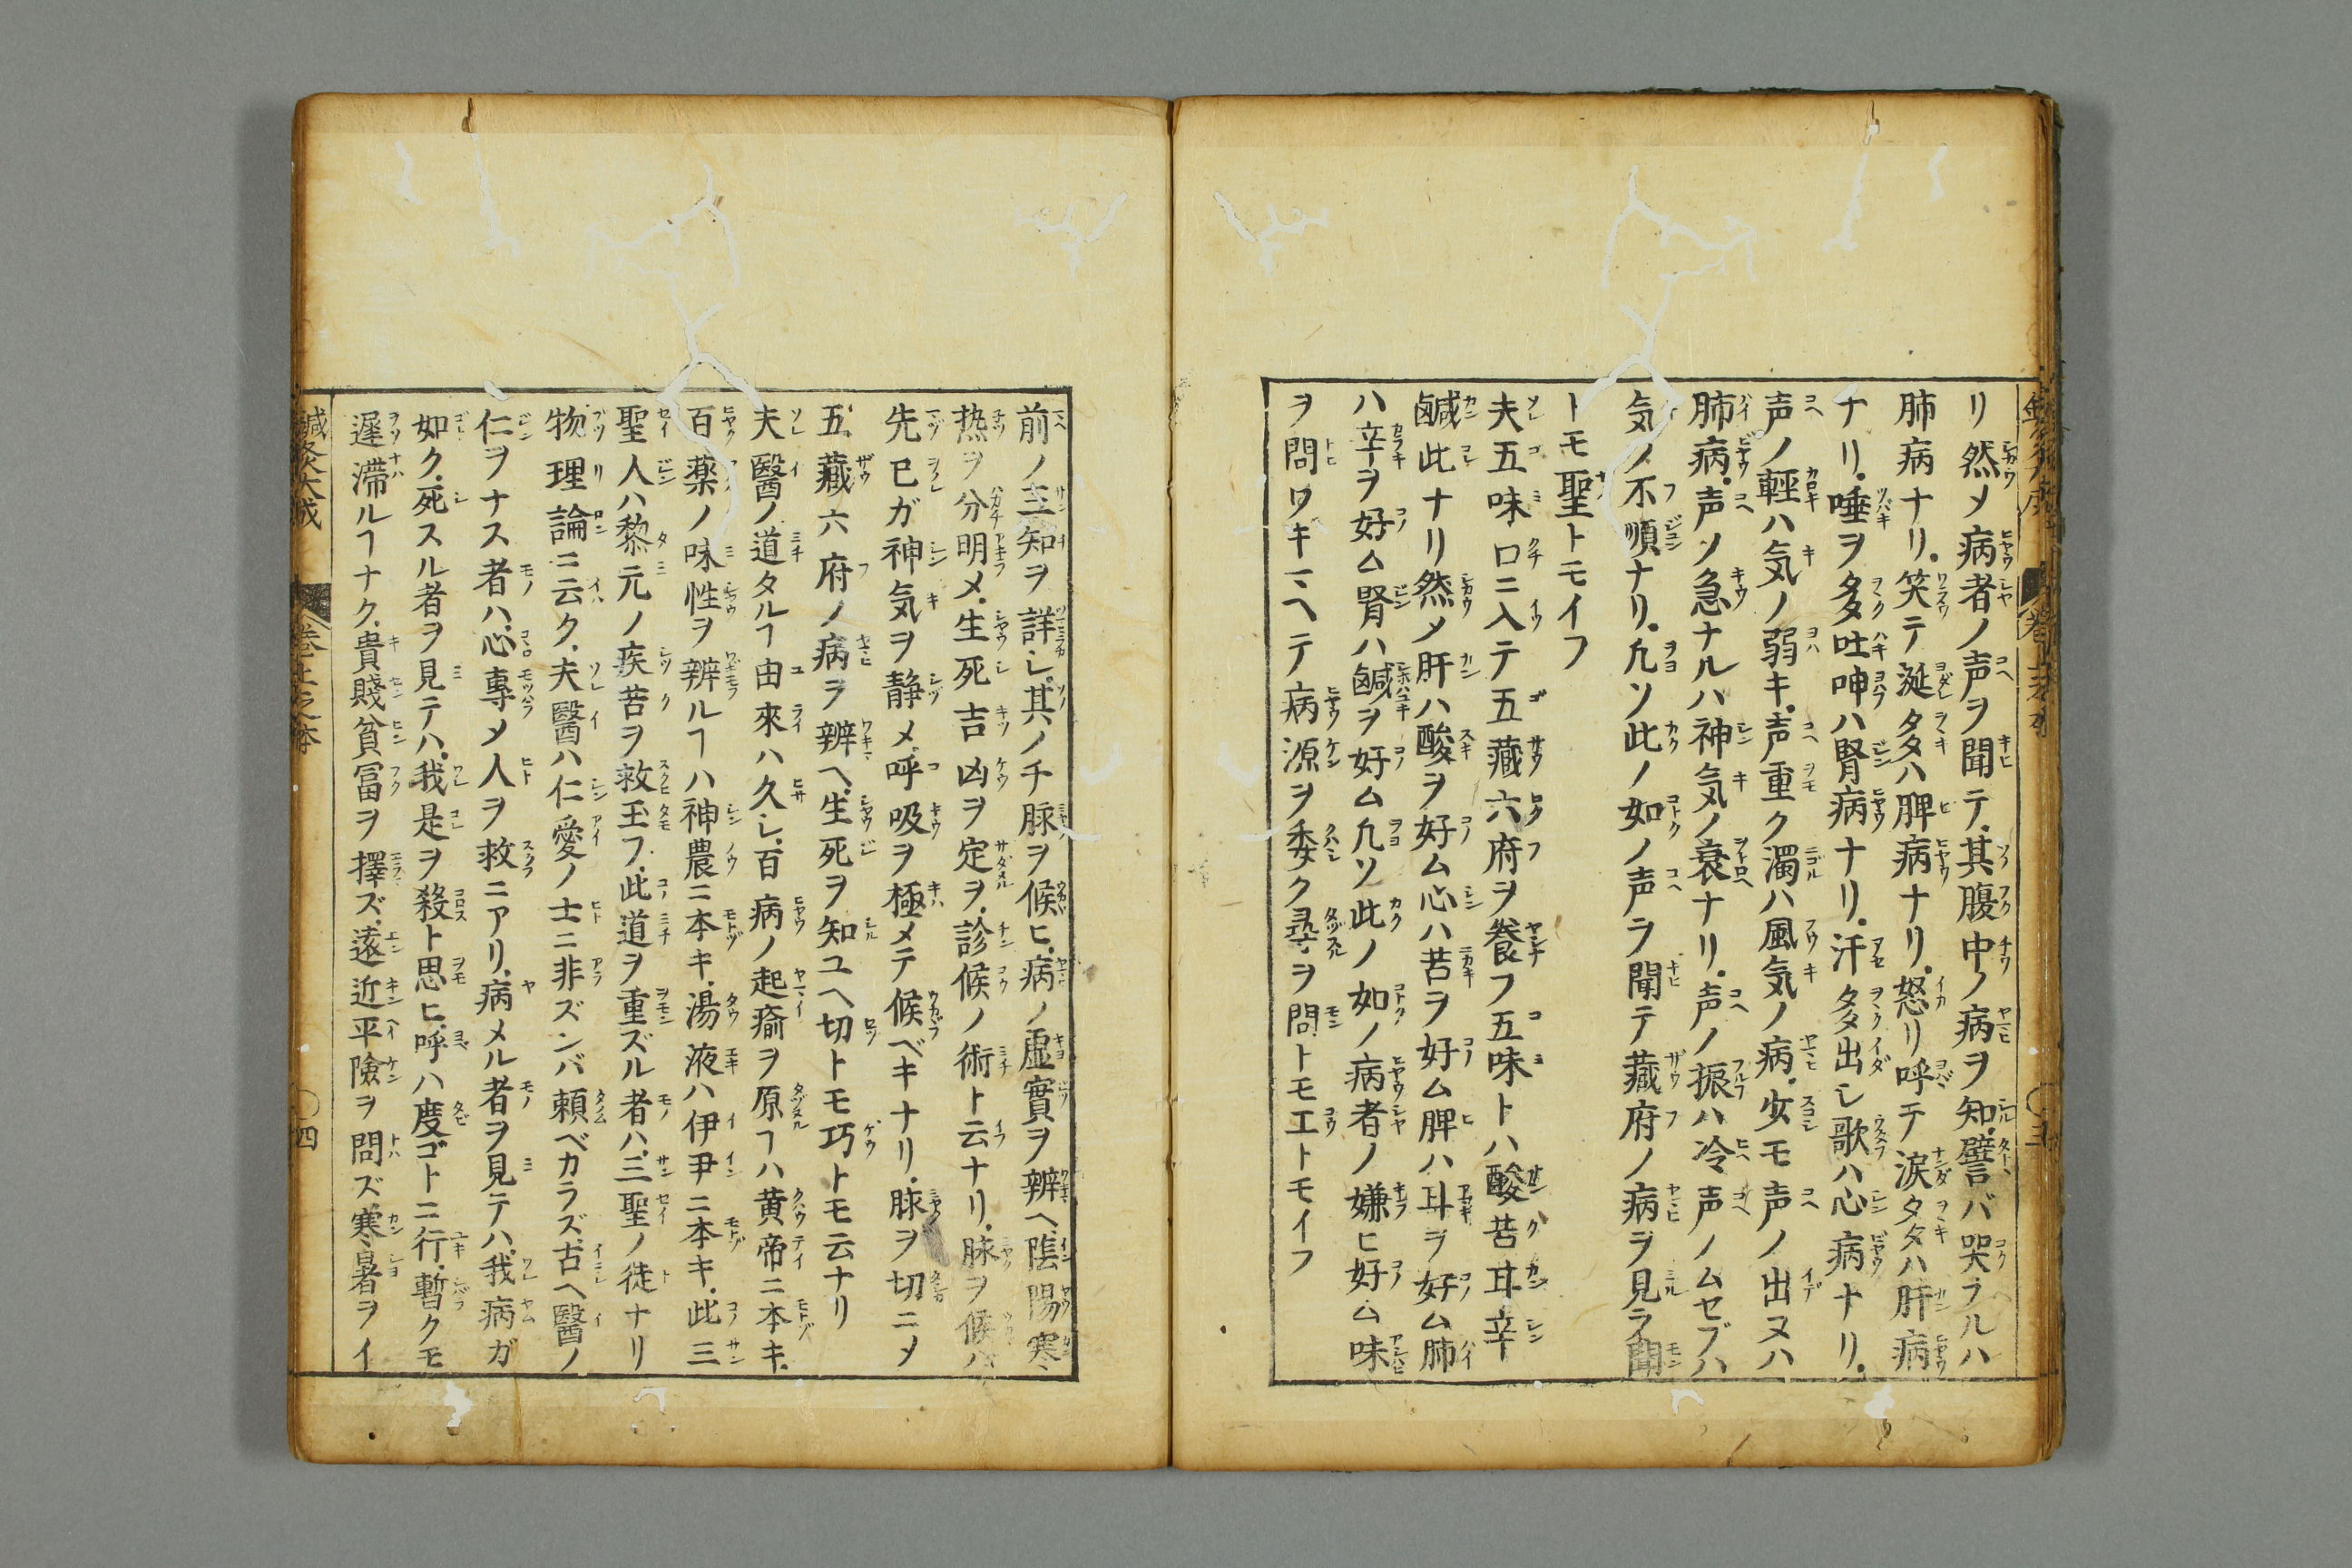 リ然メ病者ノ声ヲ聞テ其腹中ノ病ヲ知譬バ哭ラルハ
肺病ナリ笑テ涎タハ脾病ナリ怒リ呼テ涙タタハ肝病
ナリ唾ヲ多吐呻ハ腎病ナリ汗多出シ歌ハ心病ナリ
声ノ輕ハ気ノ弱キ声重ク濁ハ風気ノ病少モ声ノ出ヌハ
肺病声ソ急ナルハ神気ノ衰ナリ声ノ振ハ冷声ノムセブハ
気ノ不順ナリ凢ソ此ノ如ノ声ヲ聞テ藏府ノ病ヲ見ラ聞
トモ聖トモイフ
夫五味口ニ入テ五藏六府ヲ養フ五味トハ酸苦甘辛
鹹此ナリ然メ肝ハ酸ヲ好ム心ハ苦ヲ好ム脾ハ甘ヲ好ム肺
ハ辛ヲ好ム腎ハ鹹ヲ好ム凢ソ此ノ如ノ病者ノ嫌ヒ好ム味
ヲ問ワキマヘテ病源ヲ委ク尋ヲ問トモ工トモイフ
前ノ三知ヲ詳シ其ノチ脉ヲ候ヒ病ノ虚實ヲ辨ヘ陰陽寒
熱ヲ分明メ生死吉凶ヲ定ヲ診候ノ術ト云ナリ脉ヲ候ハ
先已ガ神気ヲ静メ呼吸ヲ極メテ候ベキナリ脉ヲ切ニメ
五藏六府ノ病ヲ辨ヘ生死ヲ知ユヘ切トモ巧トモ云ナリ
夫醫ノ道タルヿ由來ハ久シ百病ノ起瘉ヲ原ヿハ黄帝ニ本キ
百薬ノ味性ヲ辨ルヿハ神農ニ本キ湯液ハ伊尹ニ本キ此三
聖人ハ黎元ノ疾苦ヲ救玉フ此道ヲ重ズル者ハ三聖ノ徒ナリ
物理論ニ云ク夫醫ハ仁愛ノ士ニ非ズンバ頼ベカラズ古ヘ醫ノ
仁ヲナス者ハ心專メ人ヲ救ニアリ病メル者ヲ見テハ我病ガ
如ク死スル者ヲ見テハ我是ヲ殺ト思ヒ呼ハ度ゴトニ行暫クモ
遲滞ルヿナク貴賤貧冨ヲ擇ズ遠近平險ヲ問ズ寒暑ヲイ
鍼灸大成 卷上之本 四